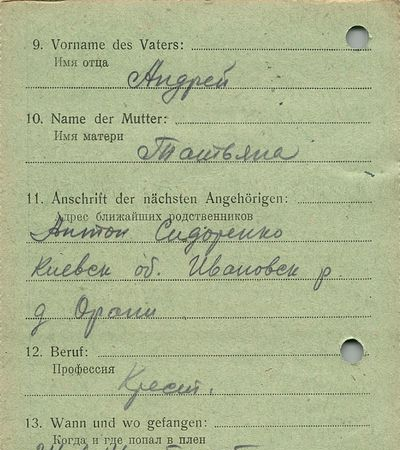 9. Vorname des Vaters:
Имя отца
Андрей
10. Name der Mutter:
Имя матери
Татьяна
11. Anschrift der nächsten Angehörigen:
Адрес ближайших родственников
Антон Сидоренко
Киевск об. Ивановск р.
д
12. Beruf:
Профессия
Крест.
13. Wann und wo gefangen:
Когда и где попал в плен